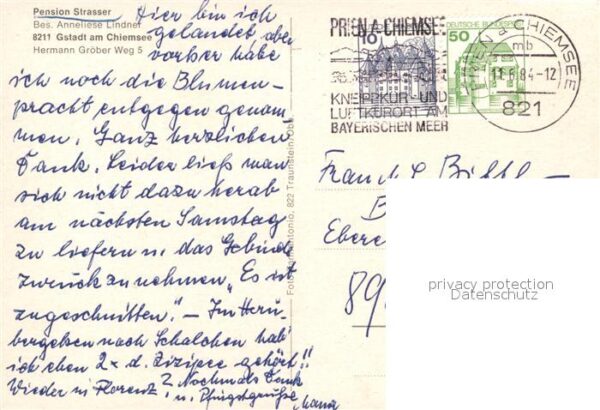 Pension Strasser
Bes. Anneliese Lindner
8211 Gstadt am Chiemsee
Hermann Gröber Weg 5
Hier bin ich
gelandet aber
vorher habe
ich noch die Blumen-
pracht entgegen genom
men. Ganz herzlichen
Dank. Leider ließ man
sich nicht dazu herab
am nächsten Samstag
zu liefern u. das Gebinde
zurückzunehmen „Es ist
zugeschnitten". – Im Herü-
bergehen nach Schalchen hab'
ich eben 2x d. Zizipee gehört!!
Wieder in Florenz? Nochmals Dank
u. Pfingstgrüße
PRIEN A CHIEMSEE
KNEIPPKUR- UND
LUFTKURORT AM
BAYERISCHEN MEER
10
DEUTSCHE BUNDESPOST
50
PRIEN a CHIEMSEE
mb
11.6.84-12
821
89
privacy protection
Datenschutz